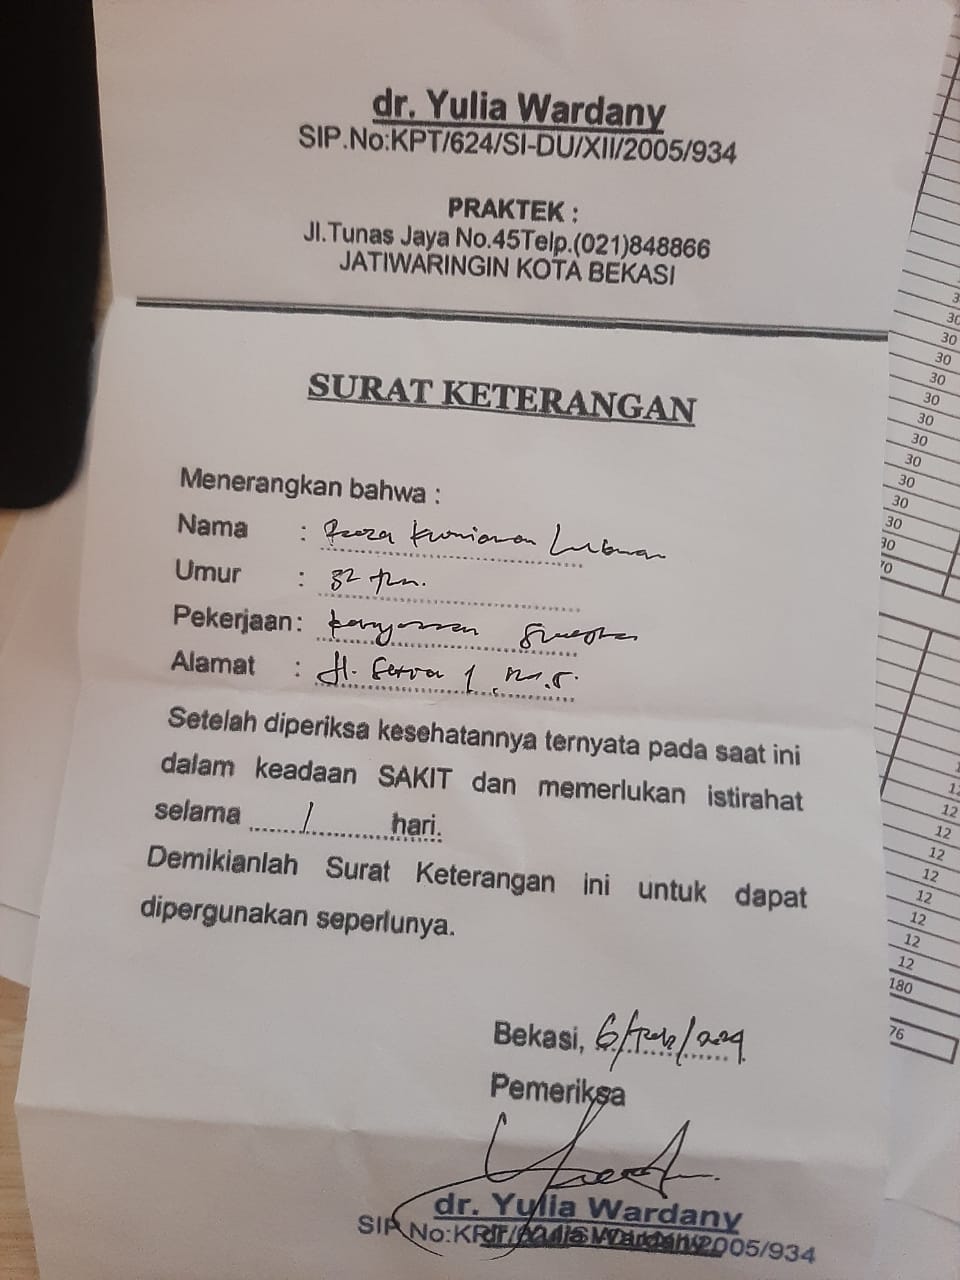 dr. Yulia Wardany
SIP.No:KPT/624/SI-DU/XII/2005/934
PRAKTEK :
Jl.Tunas Jaya No.45Telp.(021)848866
JATIWARINGIN KOTA BEKASI
SURAT KETERANGAN
Menerangkan bahwa :
Nama :
Umur : 32 thn.
Pekerjaan: karyawan
Alamat : Jl.
Setelah diperiksa kesehatannya ternyata pada saat ini
dalam keadaan SAKIT dan memerlukan istirahat
selama 1 hari.
Demikianlah Surat Keterangan ini untuk dapat
dipergunakan seperlunya.
Bekasi, 6/
Pemeriksa
dr. Yulia Wardany
SIP.No: 2005/934
30
30
30
30
30
30
30
30
30
30
30
12
12
12
12
12
12
12
12
180
76